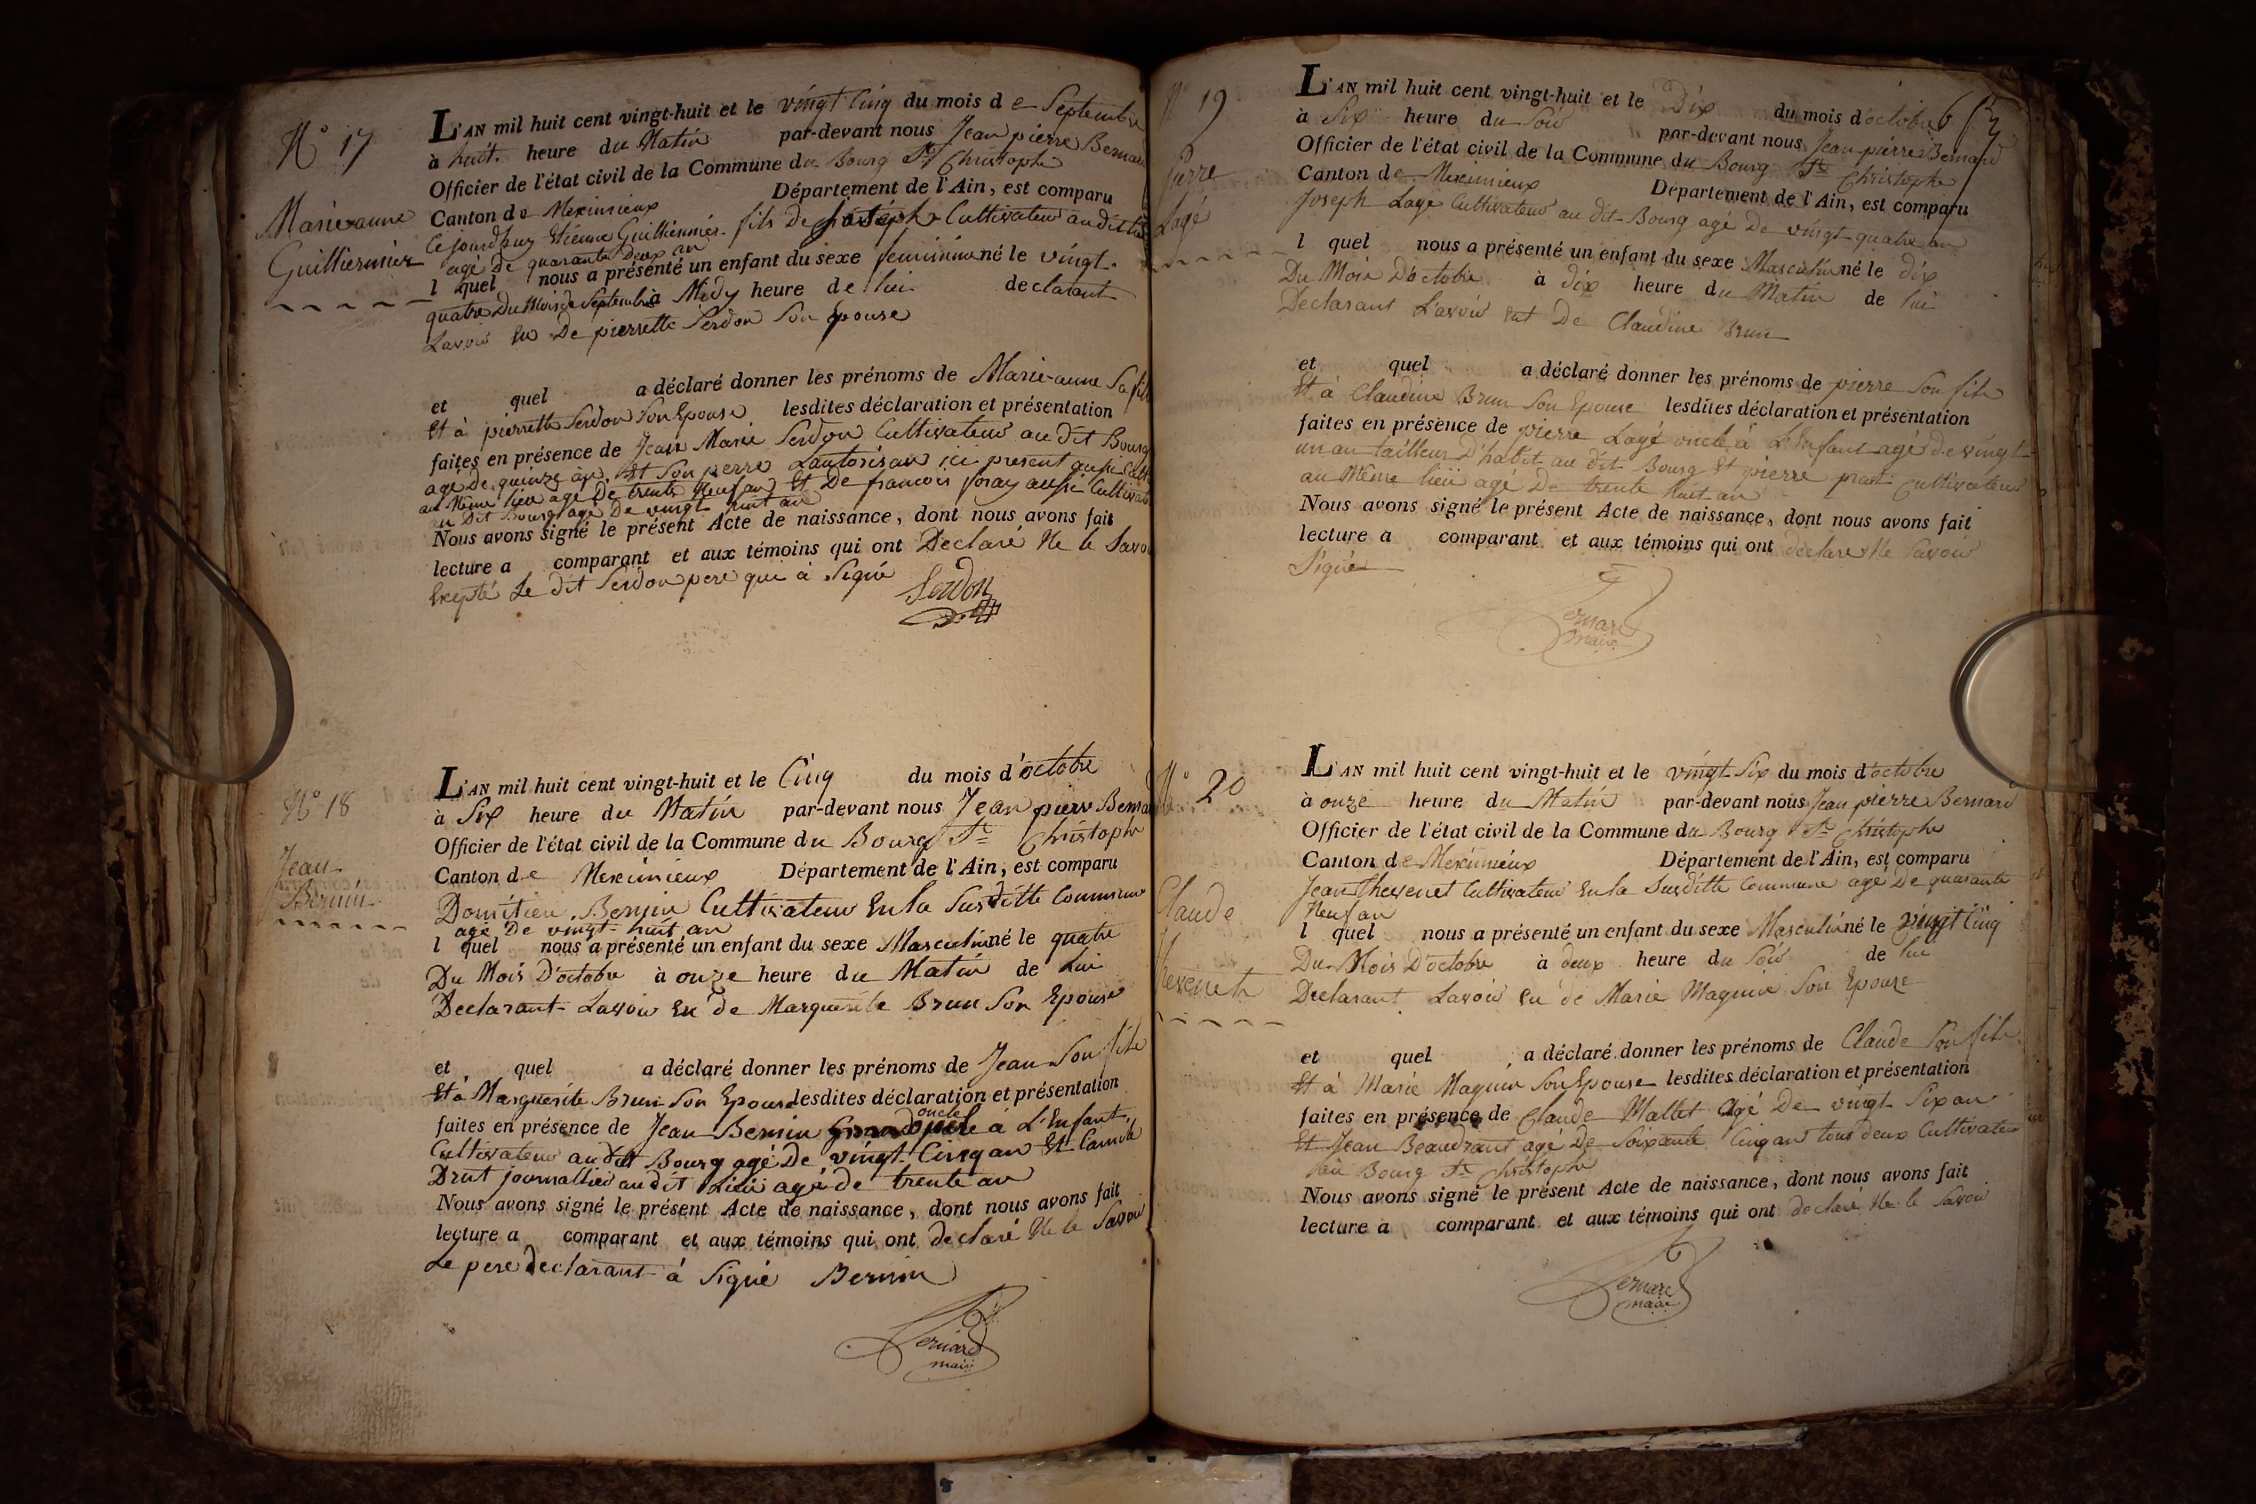 N° 17
Marie-anne
Guillierminer
L'AN mil huit cent vingt-huit et le vingt Cinq du mois de Septembre
à huit heure du Matin par-devant nous Jean pierre Bernard
Officier de l'état civil de la Commune du Bourg St Christophe
Canton de Meximieux Département de l'Ain, est comparu
Ce jourdhuy Etienne Guillierminer fils de Joseph Cultivateur au dit lieu
agé de quarante Deux an
l quel nous a présenté un enfant du sexe feminin né le vingt
quatre Du Mois de Septembre à Midy heure de lui declarant
Lavoir Eu De pierrette Serdon Son Epouse
et quel a déclaré donner les prénoms de Marie-anne Sa fille
Et à pierrette Serdon Son Epouse lesdites déclaration et présentation
faites en présence de Jean Marie Serdon Cultivateur au dit Bourg
agé de quinze an Et Son perre Lautorisan ici present aussi
au Même lieu agé De trente Neuf an Et De francois foray aussi Cultivateur
au Dit Bourg agé De vingt huit an
Nous avons signé le présent Acte de naissance, dont nous avons fait
lecture a comparant et aux témoins qui ont Déclaré Ne le Savoir
Excepté Le dit Serdon pere qui à Signé
Serdon
N° 18
Jean
Bernin
L'AN mil huit cent vingt-huit et le Cinq du mois d'octobre
à Six heure du Matin par-devant nous Jean pierre Bernard
Officier de l'état civil de la Commune du Bourg St Christophe
Canton de Meximieux Département de l'Ain, est comparu
Domitien Bernin Cultivateur En la Susditte Commune
agé De vingt-huit an
l quel nous a présenté un enfant du sexe Masculin né le quatre
Du Mois D'octobre à onze heure du Matin de Lui
Declarant Lavoir Eu de Marguerite Brun Son Epouse
et quel a déclaré donner les prénoms de Jean Son fils
Et à Marguerite Brun Son Epouse lesdites déclaration et présentation
faites en présence de Jean Bernin oncle à L'Enfant
Cultivateur au dit Bourg agé De vingt Cinq an Et
Drut journallier au dit Lieu agé de trente an
Nous avons signé le présent Acte de naissance, dont nous avons fait
lecture a comparant et aux témoins qui ont declaré Ne le Savoir
Le pere declarant à Signé Bernin
Bernard
maire
N° 19
Pierre
Lagé
L'AN mil huit cent vingt-huit et le Dix du mois d'octobre
à Six heure du Soir par-devant nous Jean-pierre Bernard
Officier de l'état civil de la Commune du Bourg St Christophe
Canton de Meximieux Département de l'Ain, est comparu
Joseph Lage Cultivateur au dit Bourg agé De vingt-quatre an
l quel nous a présenté un enfant du sexe Masculin né le dix
Du Mois D'octobre à dix heure du Matin de lui
Declarant Lavoir eut De Claudine Brun
et quel a déclaré donner les prénoms de pierre Son fils
Et à Claudine Brun Son Epouse lesdites déclaration et présentation
faites en présence de pierre Lagé oncle à L'Enfant agé de vingt
un an tailleur D'habit au dit Bourg Et pierre prat Cultivateur
au Même lieu agé De trente huit an
Nous avons signé le présent Acte de naissance, dont nous avons fait
lecture a comparant et aux témoins qui ont declare Ne Savoir
Signé
Bernard
maire
N° 20
Claude
Thevenet
L'AN mil huit cent vingt-huit et le vingt-Six du mois d'octobre
à onze heure du Matin par-devant nous Jean pierre Bernard
Officier de l'état civil de la Commune du Bourg St Christophe
Canton de Meximieux Département de l'Ain, est comparu
Jean Thevenet Cultivateur En la Susditte Commune agé De quarante
Neuf an
l quel nous a présenté un enfant du sexe Masculin né le vingt Cinq
Du Mois D'octobre à deux heure du Soir de lui
Declarant Lavoir Eu de Marie Magnin Son Epouse
et quel a déclaré donner les prénoms de Claude Son fils
Et à Marie Magnin Son Epouse lesdites déclaration et présentation
faites en présence de Claude Mallet Agé De vingt Six an
Et Jean Beaudrant agé De Soixante Cinq an tous deux Cultivateur
au Bourg St Christophe
Nous avons signé le présent Acte de naissance, dont nous avons fait
lecture a comparant et aux témoins qui ont declaré Ne le Savoir
Bernard
maire